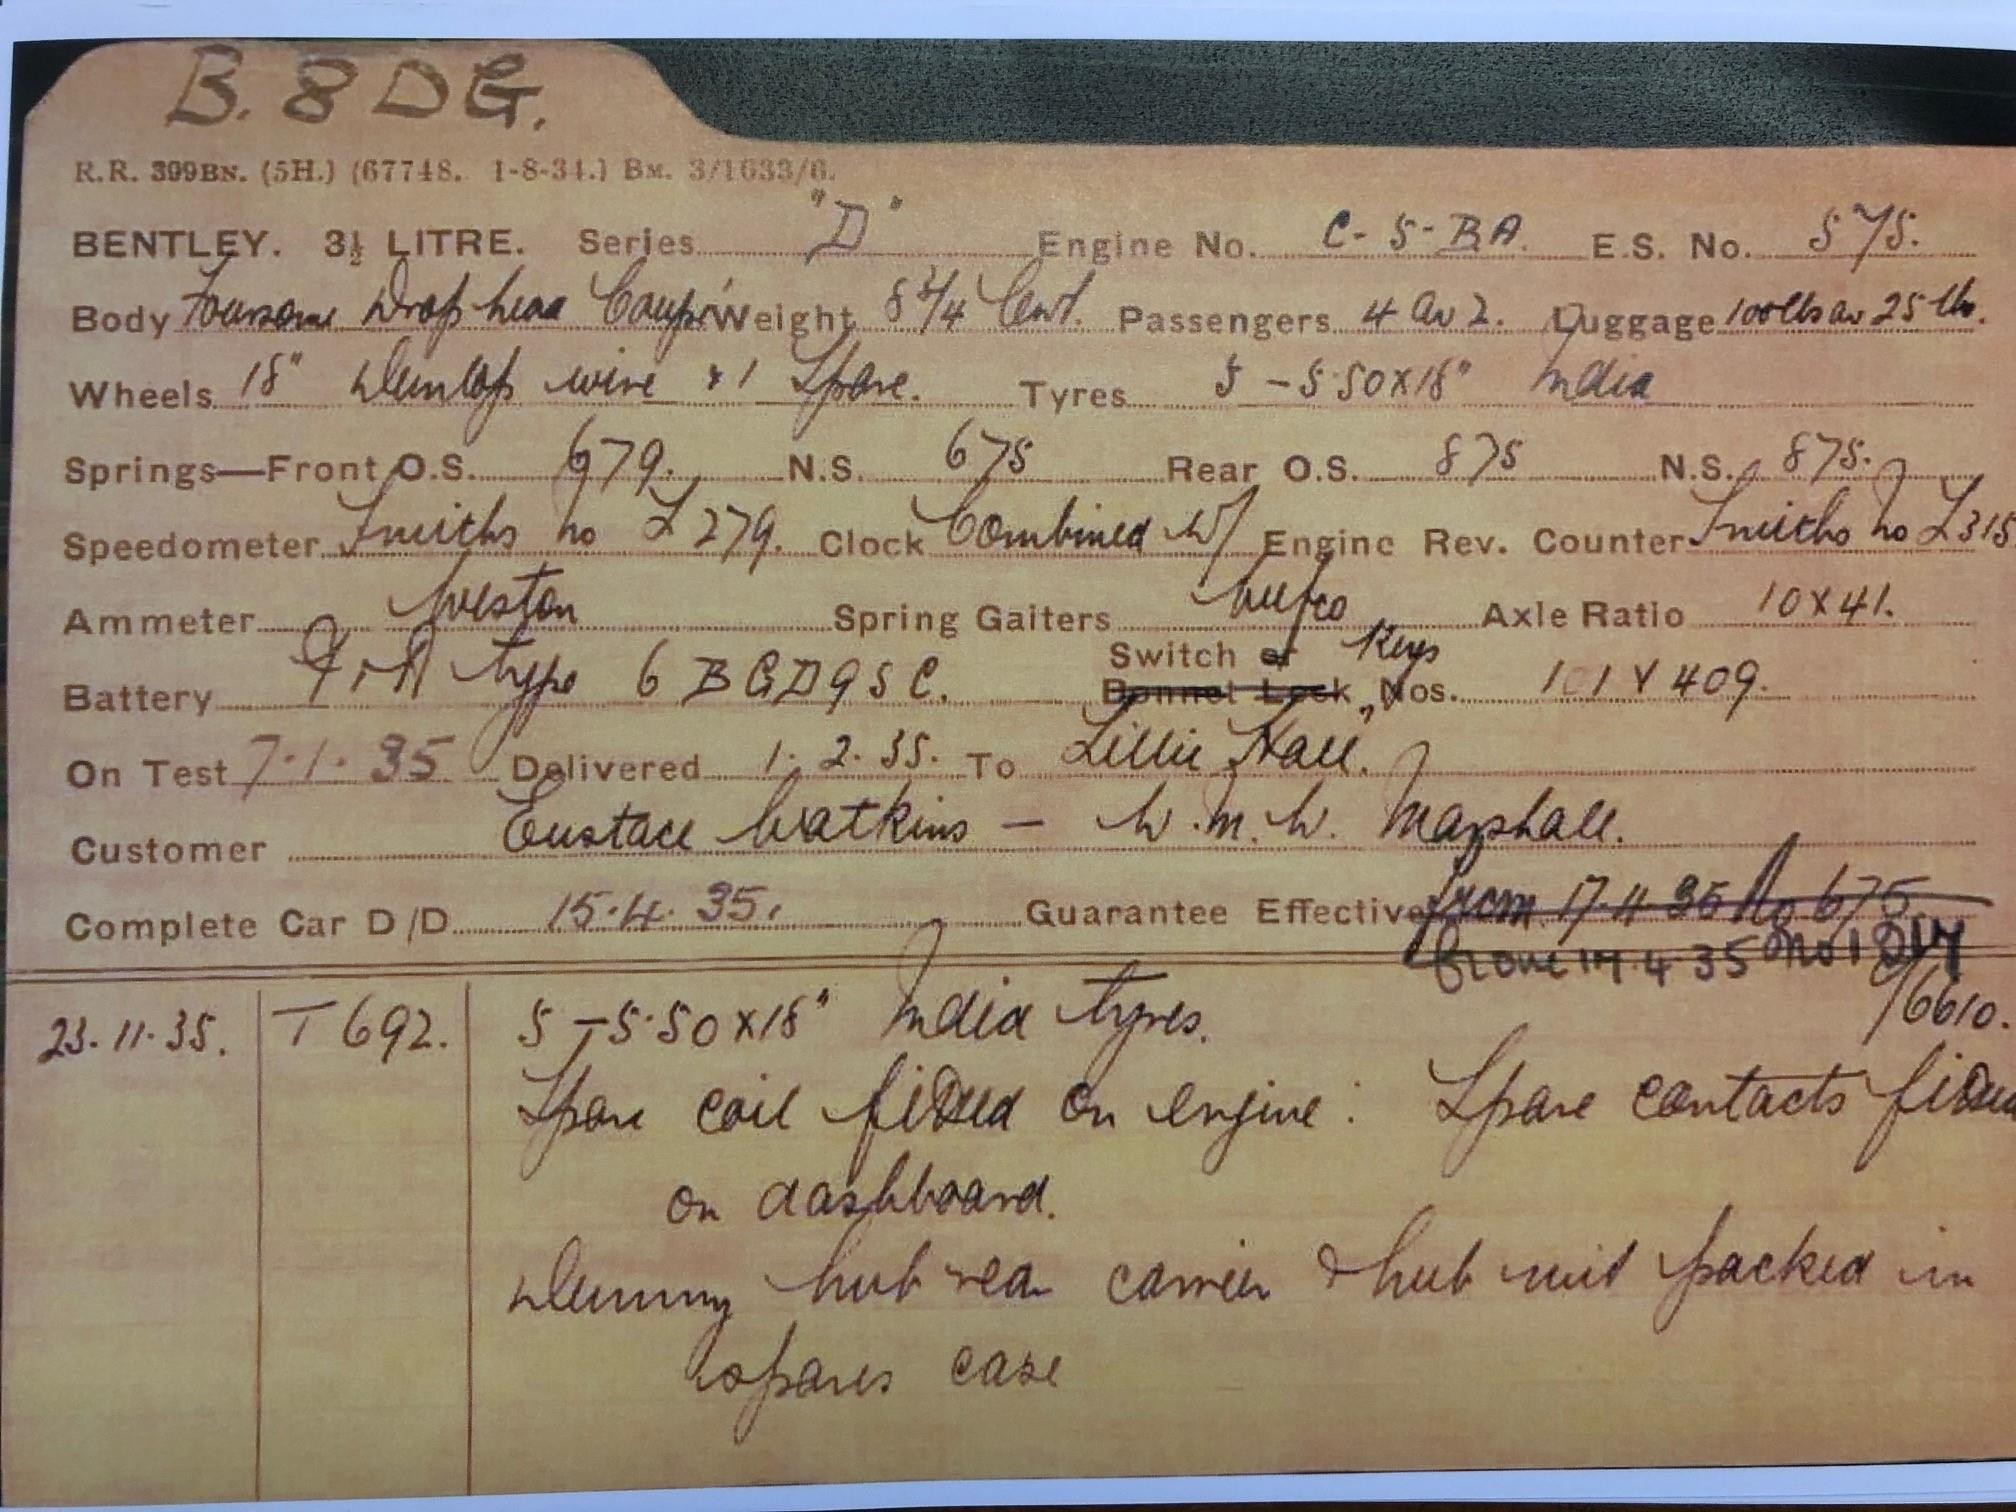 B. 8 DG.
R.R. 399BN. (5H.) (67748. 1-8-34.) BM. 3/1633/6.
BENTLEY. 3½ LITRE. Series "D" Engine No. C-5-BA. E.S. No. 575.
Body Foursome Drop-head Coupe Weight 8 3/4 Cwt. Passengers 4 Av 2. Luggage 100lbs av 25 lbs.
Wheels 18" Dunlop wire & 1 Spare. Tyres 5 - 5.50x18" India
Springs—Front O.S. 679. N.S. 675 Rear O.S. 875 N.S. 875.
Speedometer Smiths No L279. Clock Combined W/ Engine Rev. Counter Smiths No L315
Ammeter Weston Spring Gaiters Wefco Axle Ratio 10 x 41.
Battery P & R type 6 BGD9SC. Switch or Keys Bonnet Lock Nos. 101 Y 409.
On Test 7.1.35 Delivered 1.2.35. To "Lillie Hall."
Customer Eustace Watkins — W.M.W. Marshall.
Complete Car D/D 15.4.35. Guarantee Effective from 17.4.35 No 675
from 17.4.35 No 1
/6610.
23.11.35. T 692. 5 - 5.50x18" India tyres.
Spare coil fitted on engine: Spare contacts fitted
on dashboard.
Dummy hub rear carrier & hub nut packed in
spares case